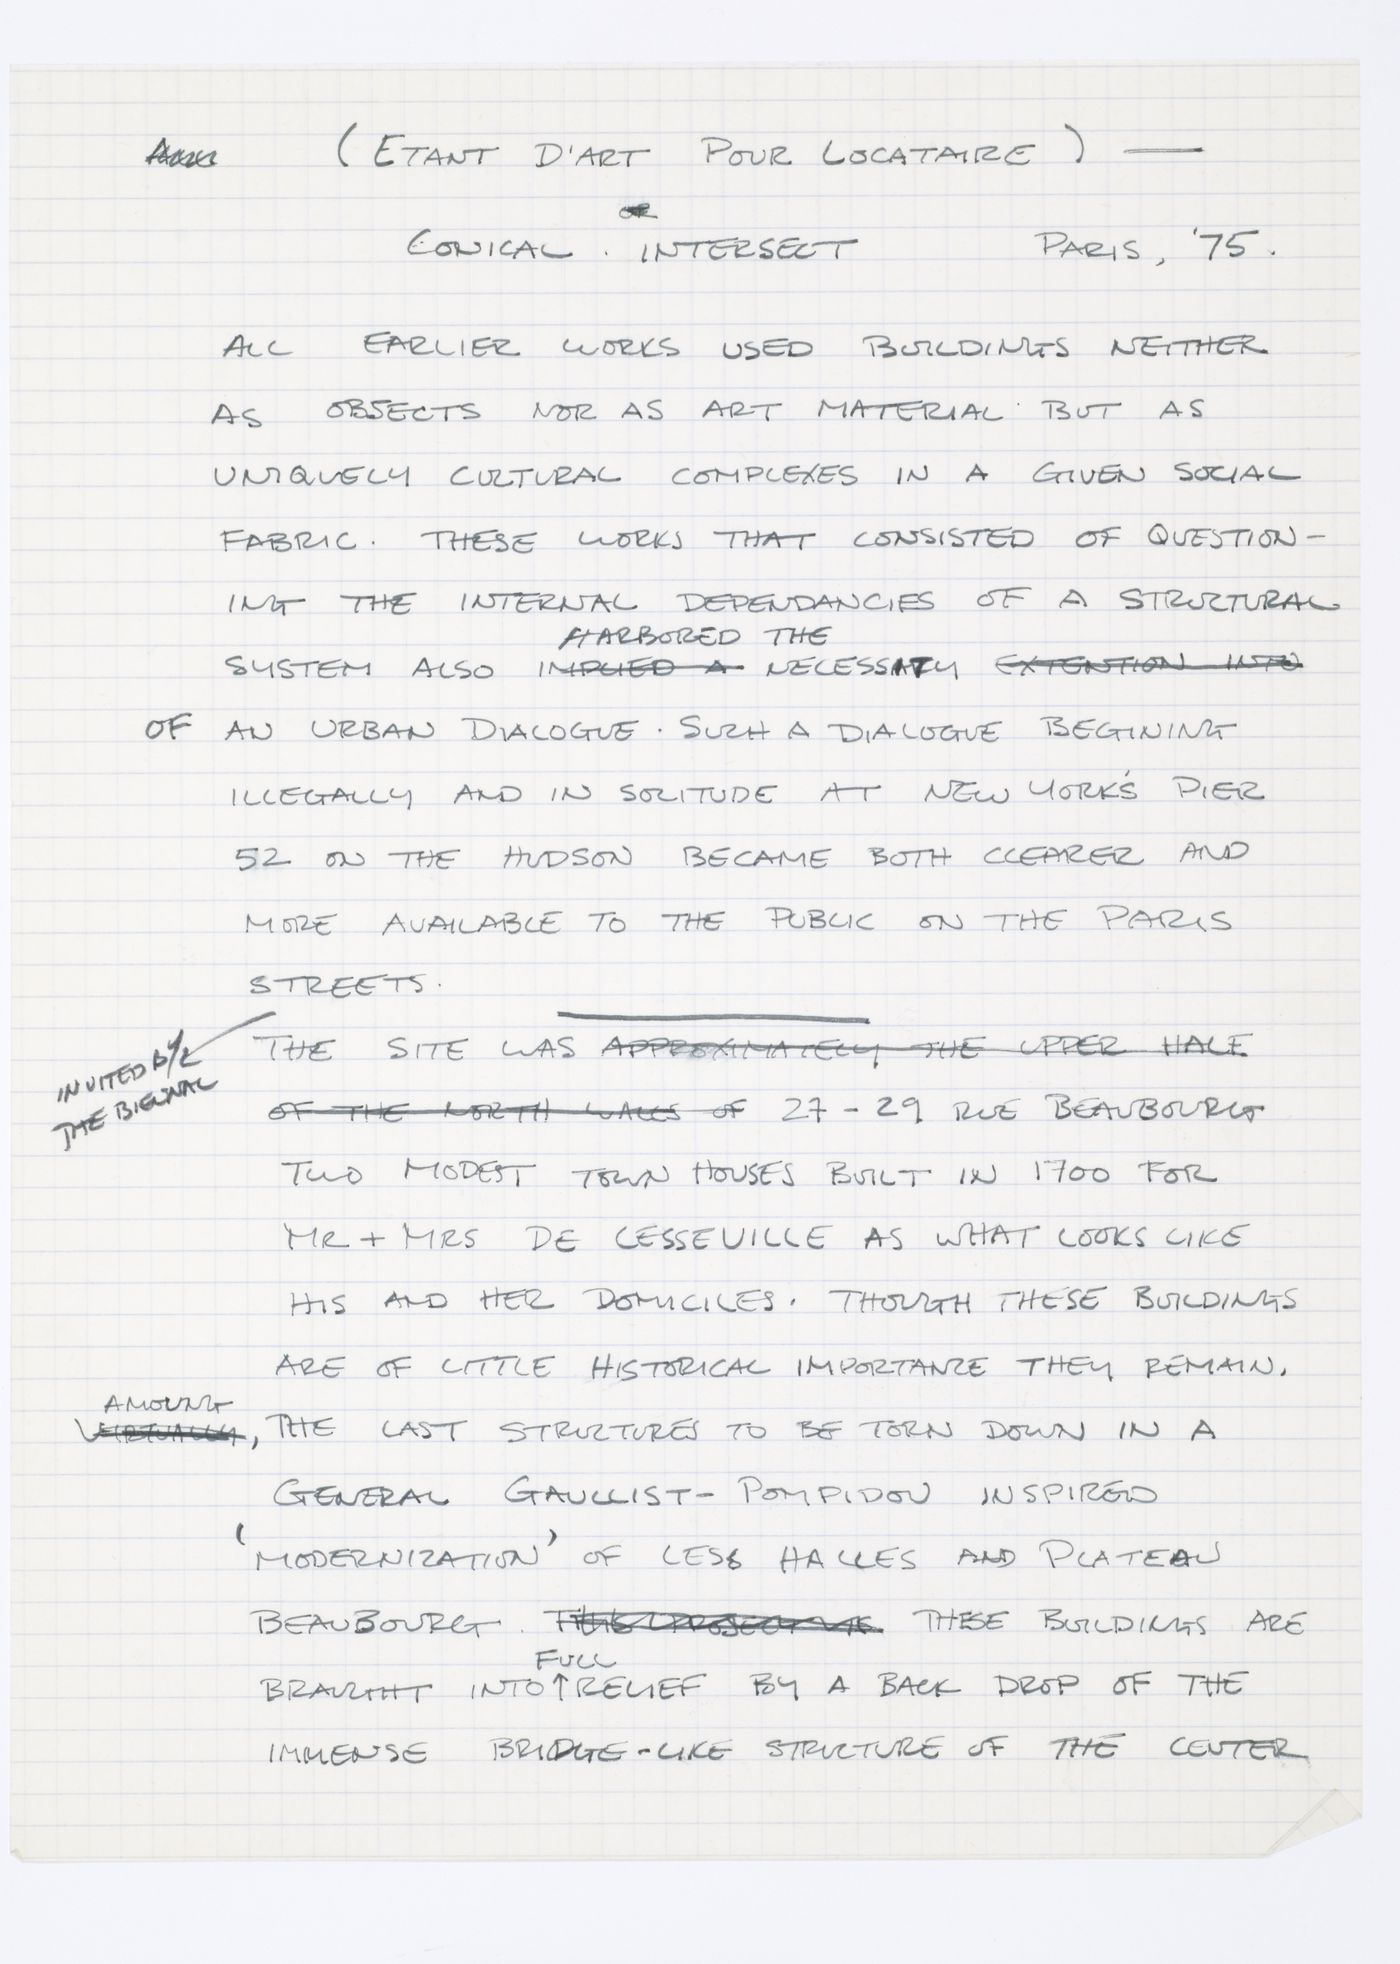 ( ETANT D'ART POUR LOCATAIRE ) —
OR
CONICAL . INTERSECT PARIS, '75.
ALL EARLIER WORKS USED BUILDINGS NEITHER
AS OBJECTS NOR AS ART MATERIAL BUT AS
UNIQUELY CULTURAL COMPLEXES IN A GIVEN SOCIAL
FABRIC. THESE WORKS THAT CONSISTED OF QUESTION-
ING THE INTERNAL DEPENDANCIES OF A STRUCTURAL
HARBORED THE
SYSTEM ALSO IMPLIED A NECESSATY EXTENTION INTO
OF AN URBAN DIALOGUE. SUCH A DIALOGUE BEGINING
ILLEGALLY AND IN SOLITUDE AT NEW YORK'S PIER
52 ON THE HUDSON BECAME BOTH CLEARER AND
MORE AVAILABLE TO THE PUBLIC ON THE PARIS
STREETS.
INVITED BY
THE BIENNAL
THE SITE WAS APPROXIMATELY THE UPPER HALF
OF THE NORTH WALLS OF 27-29 RUE BEAUBOURG
TWO MODEST TOWN HOUSES BUILT IN 1700 FOR
MR + MRS DE LESSEVILLE AS WHAT LOOKS LIKE
HIS AND HER DOMICILES. THOUGH THESE BUILDINGS
ARE OF LITTLE HISTORICAL IMPORTANCE THEY REMAIN.
AMOUNG
VIRTUALLY, THE LAST STRUCTURES TO BE TORN DOWN IN A
GENERAL GAULLIST-POMPIDOU INSPIRED
'MODERNIZATION' OF LESS HALLES AND PLATEAU
BEAUBOURG. THIS PROJECT WAS THESE BUILDINGS ARE
FULL
BRAUGHT INTO ↑ RELIEF BY A BACK DROP OF THE
IMMENSE BRIDGE-LIKE STRUCTURE OF THE CENTER